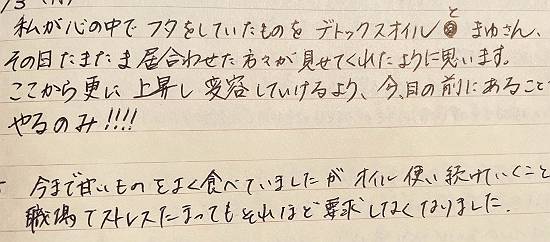 私が心の中でフタをしていたものをデトックスオイルとまゆさん、
その日たまたま居合わせた方々が見せてくれたように思います。
ここから更に上昇し変容していけるより、今、目の前にあること
やるのみ!!!!
今まで甘いものをよく食べていましたがオイル使い続けていくこと
職場でストレスたまってもそれほど要求しなくなりました.